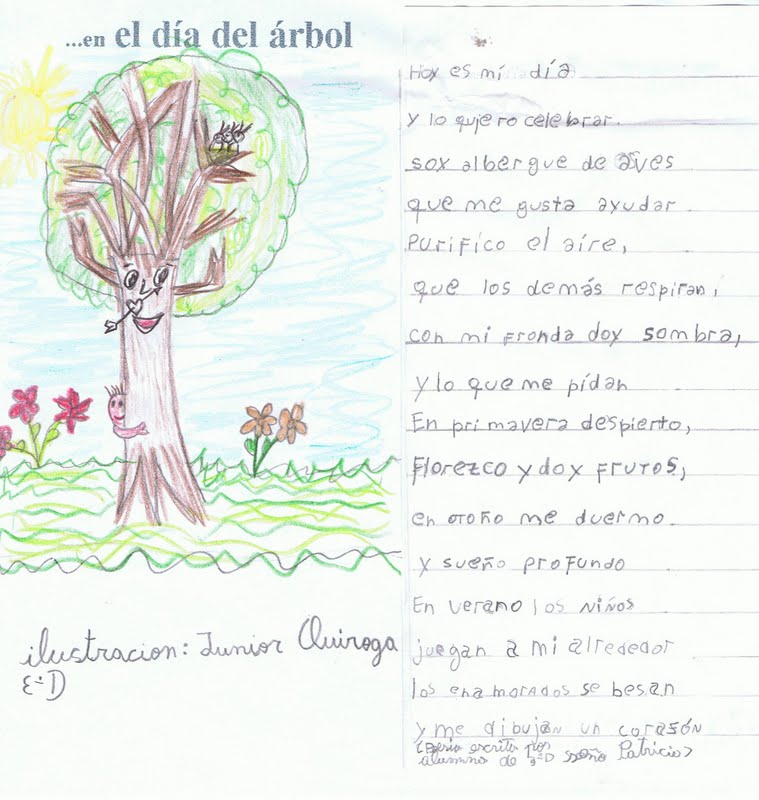 ...en el día del árbol
ilustracion: Junior Quiroga
Hoy es mí día
y lo quiero celebrar.
soy albergue de aves
que me gusta ayudar
Purifico el aire,
que los demás respiran,
con mi fronda doy sombra,
y lo que me pídan
En primavera despierto,
Florezco y doy frutos,
en otoño me duermo
y sueño profundo
En verano los niños
juegan a mi alrededor
los enamorados se besan
y me dibujan un corasón
escrita por
alumnos de seño Patricia)